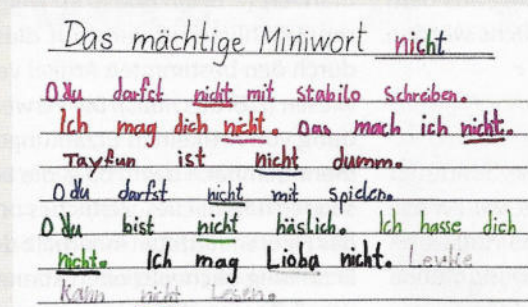 Das mächtige Miniwort nicht
O du darfst nicht mit stabilo schreiben.
Ich mag dich nicht. Das mach ich nicht.
Tayfun ist nicht dumm.
O du darfst nicht mit spielen.
O du bist nicht häslich. Ich hasse dich
nicht. Ich mag Lioba nicht. Levke
Kahn nicht Lesen.